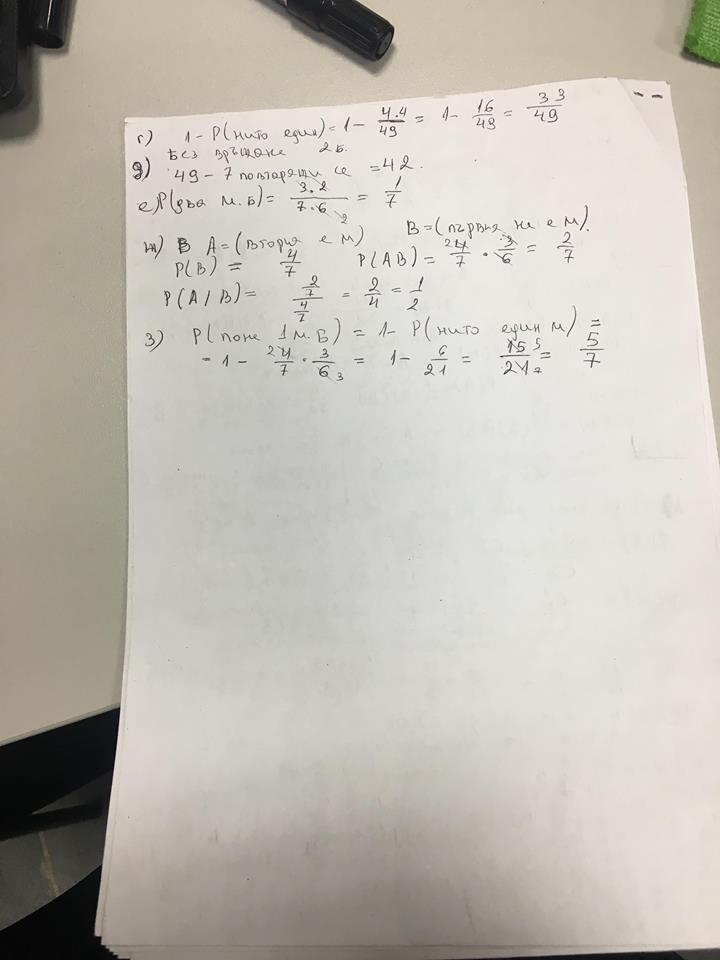 г) 1 - P(нито един) = 1 - 4.4/49 = 1 - 16/49 = 33/49
Без връщане 2б.
д) 49 - 7 повтарящи се = 42.
е) P(два м.Б) = 3.2/7.6 2 = 1/7
ж) В A = (втория е м) B = (първия не е м).
P(B) = 4/7 P(AB) = 2 4/7 · 3/6 = 2/7
P(A/B) = 2/7 / 4/7 = 2/4 = 1/2
з) P(поне 1 м.Б) = 1 - P(нито един м) =
= 1 - 2 4/7 · 3/6 3 = 1 - 6/21 = 15 5/21 7 = 5/7